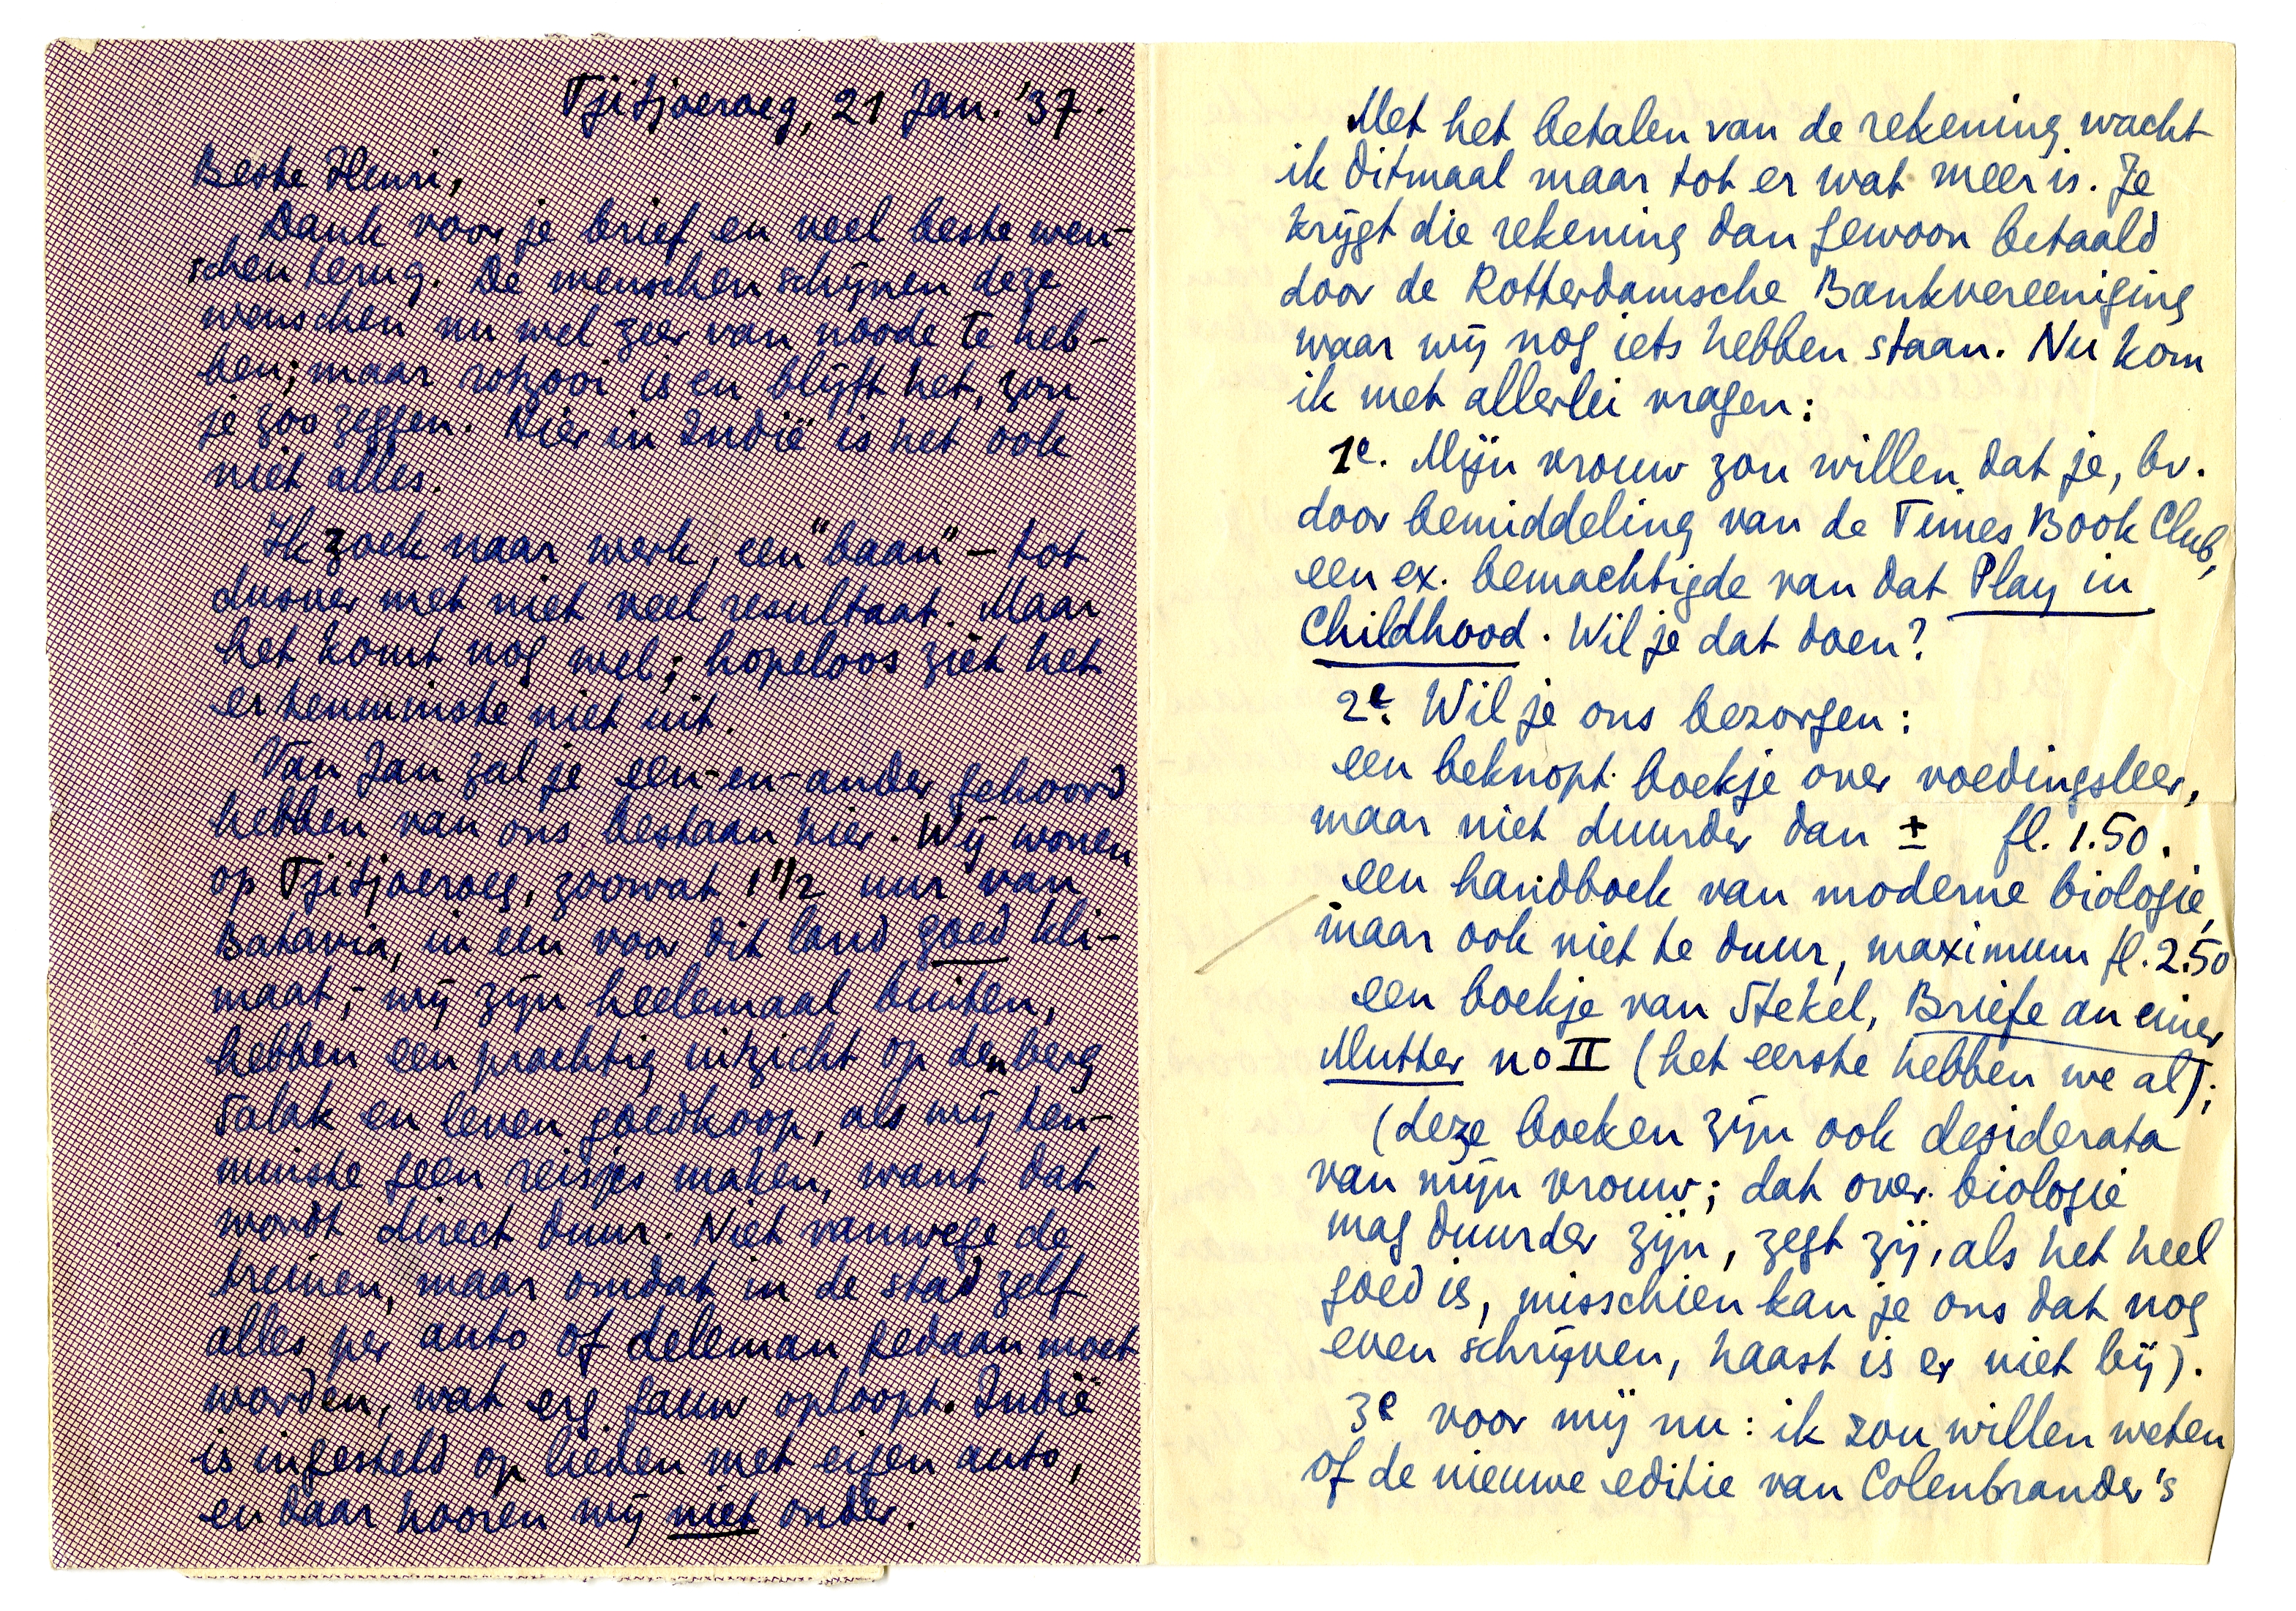 Tjitjoeroeg, 21 Jan. '37.
Beste Henri,
Dank voor je brief en veel beste wen-
schen terug. De menschen schijnen deze
wenschen nu wel zeer van noode te heb-
ben; maar rotzooi is en blijft het, zou
je zoo zeggen. Hier in Indië is het ook
niet alles.
Ik zoek naar werk, een "baan" – tot
dusver met niet veel resultaat. Maar
het komt nog wel; hopeloos ziet het
er tenminste niet uit.
Van Jan zal je een-en-ander gehoord
hebben van ons bestaan hier. Wij wonen
op Tjitjoeroeg, zoowat 1 1/2 uur van
Batavia, in een voor dit land goed kli-
maat; wij zijn heelemaal buiten,
hebben een prachtig uitzicht op den berg
Salak en leven goedkoop, als wij ten-
minste geen reisjes maken, want dat
wordt direct duur. Niet vanwege de
treinen, maar omdat in de stad zelf
alles per auto of deleman gedaan moet
worden, wat erg gauw oploopt. Indië
is ingesteld op lieden met eigen auto,
en daar hooren wij niet onder.
Met het betalen van de rekening wacht
ik ditmaal maar tot er wat meer is. Je
krijgt die rekening dan gewoon betaald
door de Rotterdamsche Bankvereeniging
waar wij nog iets hebben staan. Nu kom
ik met allerlei vragen:
1e. Mijn vrouw zou willen dat je, bv.
door bemiddeling van de Times Book Club,
een ex. bemachtigde van dat Play in
Childhood. Wil je dat doen?
2e. Wil je ons bezorgen:
een beknopt boekje over voedingsleer,
maar niet duurder dan ± fl. 1.50.
een handboek van moderne biologie,
maar ook niet te duur, maximum fl. 2.50
een boekje van Stekel, Briefe an einer
Mutter no II (het eerste hebben we al);
(deze boeken zijn ook desiderata
van mijn vrouw; dat over biologie
mag duurder zijn, zegt zij, als het heel
goed is, misschien kan je ons dat nog
even schrijven, haast is er niet bij).
3e voor mij nu: ik zou willen weten
of de nieuwe editie van Colenbrander's